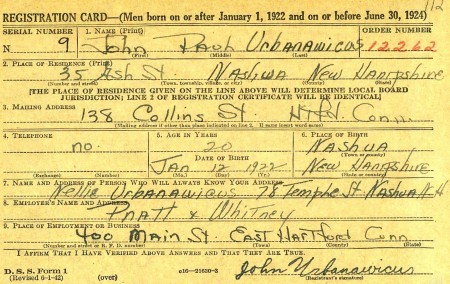 12
REGISTRATION CARD—(Men born on or after January 1, 1922 and on or before June 30, 1924)
SERIAL NUMBER 1. NAME (Print) ORDER NUMBER
N 9 John Paul Urbanawicus 12262
(First) (Middle) (Last)
2. PLACE OF RESIDENCE (Print)
35 Ash St. Nashua New Hampshire
(Number and street) (Town, township, village, or city) (County) (State)
[THE PLACE OF RESIDENCE GIVEN ON THE LINE ABOVE WILL DETERMINE LOCAL BOARD
JURISDICTION; LINE 2 OF REGISTRATION CERTIFICATE WILL BE IDENTICAL]
3. MAILING ADDRESS
138 Collins St. HTFD Conn.
[Mailing address if other than place indicated on line 2. If same insert word same]
4. TELEPHONE 5. AGE IN YEARS 6. PLACE OF BIRTH
no. 20 Nashua
DATE OF BIRTH (Town or county)
JAN 12 1922 New Hampshire
(Exchange) (Number) (Mo.) (Day) (Yr.) (State or country)
7. NAME AND ADDRESS OF PERSON WHO WILL ALWAYS KNOW YOUR ADDRESS
Nellie Urbanawicus 78 Temple St Nashua N.H
8. EMPLOYER'S NAME AND ADDRESS
Pratt & Whitney
9. PLACE OF EMPLOYMENT OR BUSINESS
400 Main St. East Hartford Conn
(Number and street or R. F. D. number) (Town) (County) (State)
I AFFIRM THAT I HAVE VERIFIED ABOVE ANSWERS AND THAT THEY ARE TRUE.
D. S. S. Form 1
(Revised 6-1-42) (over) c16—21630-2 John Urbanawicus
(Registrant's signature)